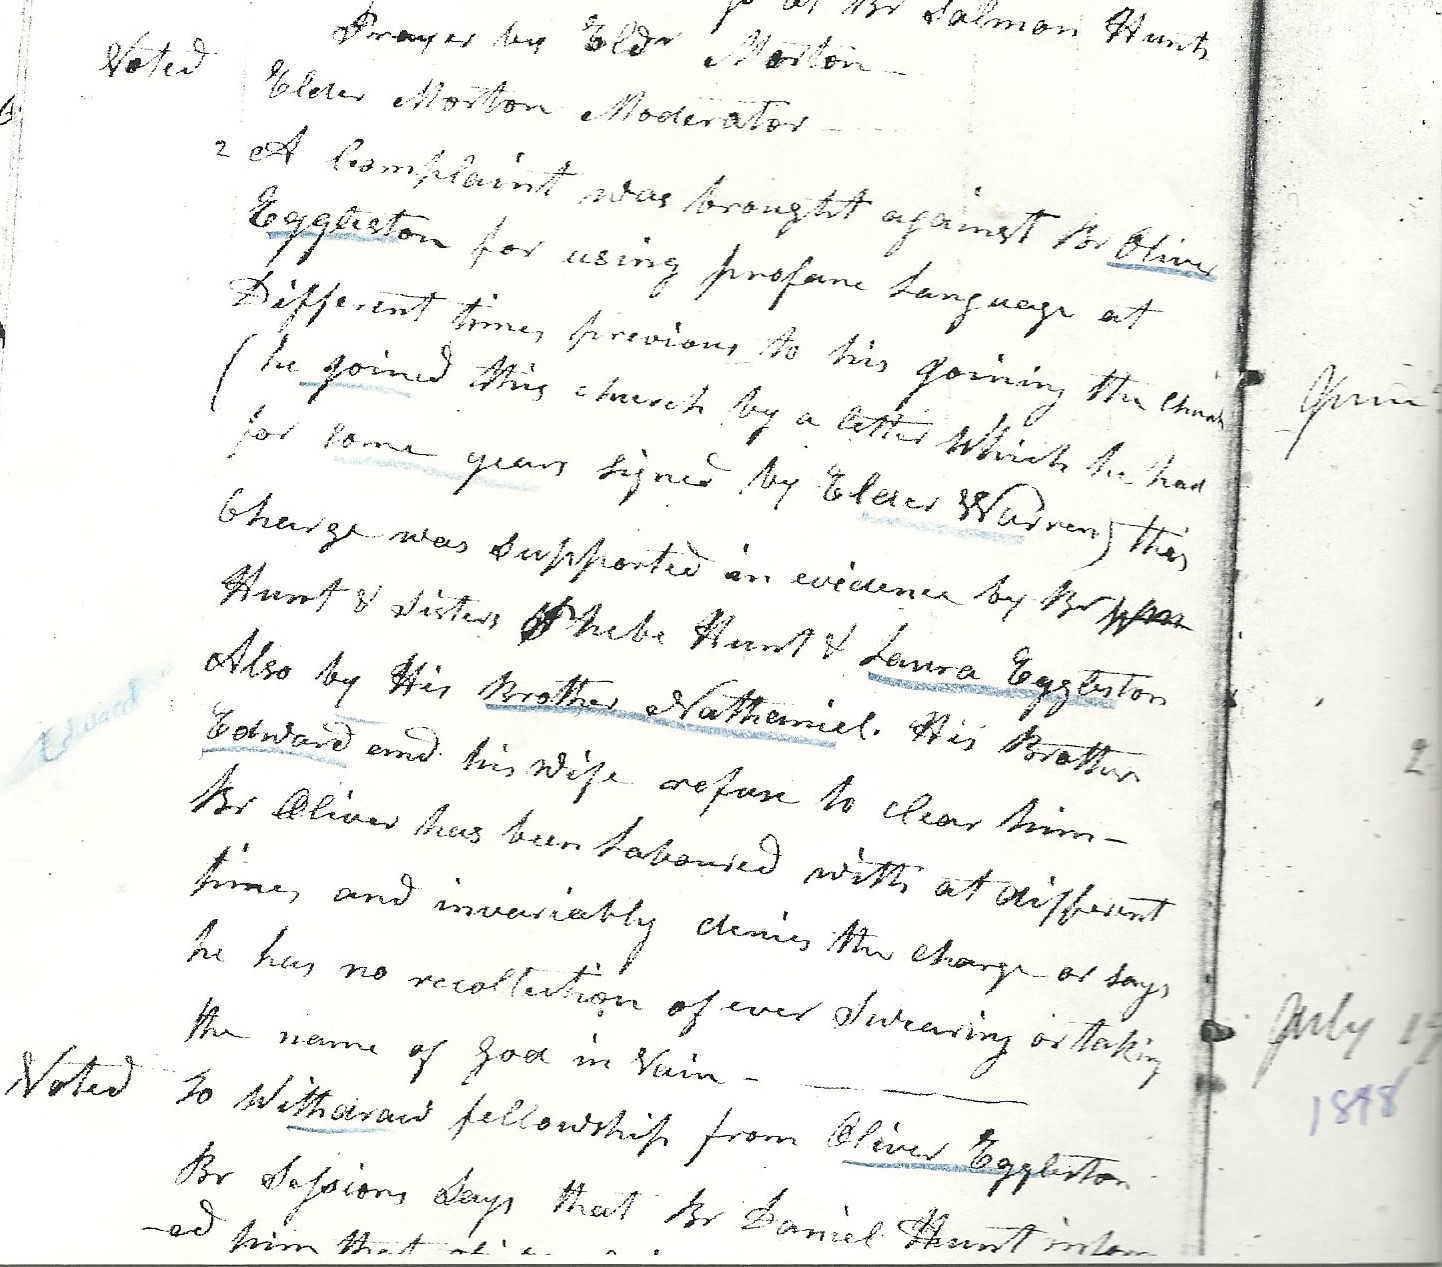 at Br Salmon Hunts
Prayer by Eldr Morton
Voted Elder Morton Moderator
2 A Complaint was brought against Br Oliver
Eggleston for using profane Language at
Different times previous to his joining the Church
( he joined this church by a letter Which he had
for some years signed by Elder Warren) this
Charge was supported in evidence by Br
Hunt & Sisters Phebe Hunt & Laura Eggleston
Also by His Brother Nathaniel. His Brother
Edward
Edward and his wife refuse to clear him-
Br Oliver has been Laboured with at different
times and invariably denies the charge or says
he has no recollection of ever Swearing or taking
the name of God in Vain -
Voted to Withdraw fellowship from Oliver Eggleston
Br Sessions Says that Br Daniel Hunt inform
-ed him that
2
July 19